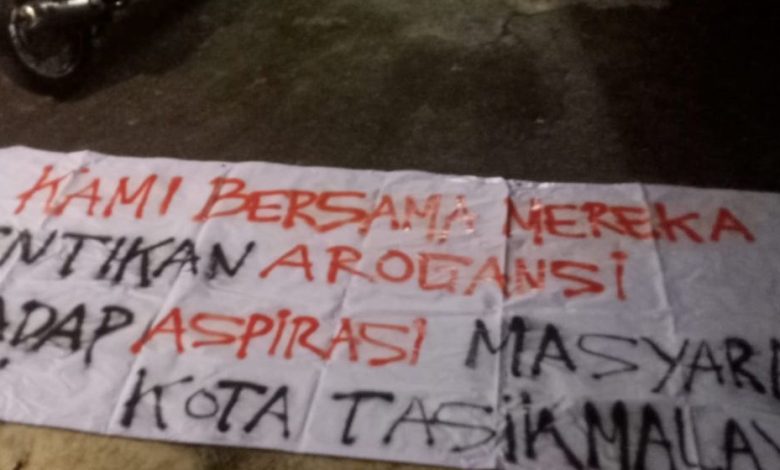 KAMI BERSAMA MEREKA
ENTIKAN AROGANSI
ADAP ASPIRASI MASYAR
KOTA TASIKMALAY